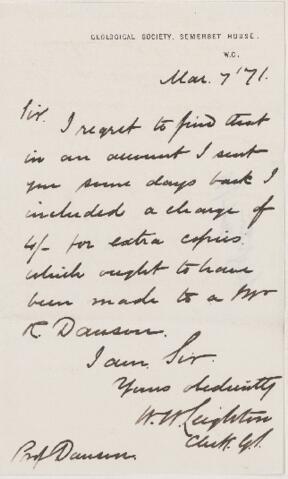 GEOLOGICAL SOCIETY, SOMERSET HOUSE.
W.C.
Mar. 7 '71.
Sir.
I regret to find that
in an account I sent
you some days back I
included a charge of
4/- for extra copies
which ought to have
been made to a Mr
R. Dawson.
I am, Sir
Yours obediently
W. W. Leighton
Clerk G.S.
Prof Dawson.